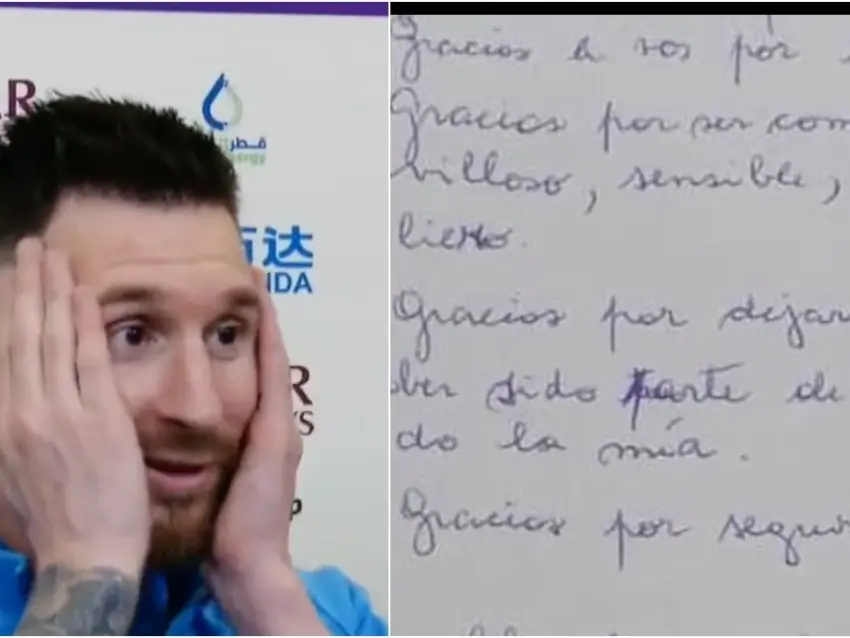 AR
قطر
ergy
万达
NDA
R
YS
P
Gracias a vos por
Gracias por ser com
villoso, sensible,
lierto.
Gracias por dejar
ber sido parte de
do la mía.
Gracias por segui